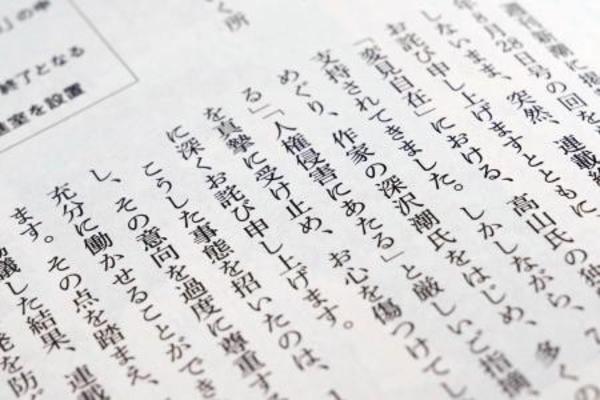 週刊新潮に掲
年8月28日号の回を
しないまま、突然、連載
お詫び申し上げますとともに、
「変見自在」における、高山氏の独
支持されてきました。しかしながら、多くの
めぐり、作家の深沢潮氏をはじめ、
る「人権侵害にあたる」と厳しいご指摘、
を真摯に受け止め、お心を傷つけてし
に深くお詫び申し上げます。
こうした事態を招いたのは、
し、その意向を過度に尊重する
充分に働かせることができ
ます。その点を踏まえ、
協議した結果、連載
発を防ぎ
く所
の中
終了となる
室を設置